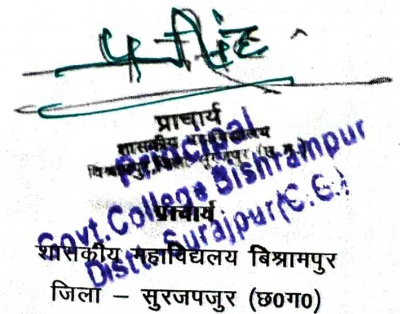 प्राचार्य
शासकीय महाविद्यालय
Principal
Govt. College Bishrampur
Distt. Surajpur (C.G.)
प्राचार्य
शासकीय महाविद्यालय बिश्रामपुर
जिला – सुरजपजुर (छ0ग0)